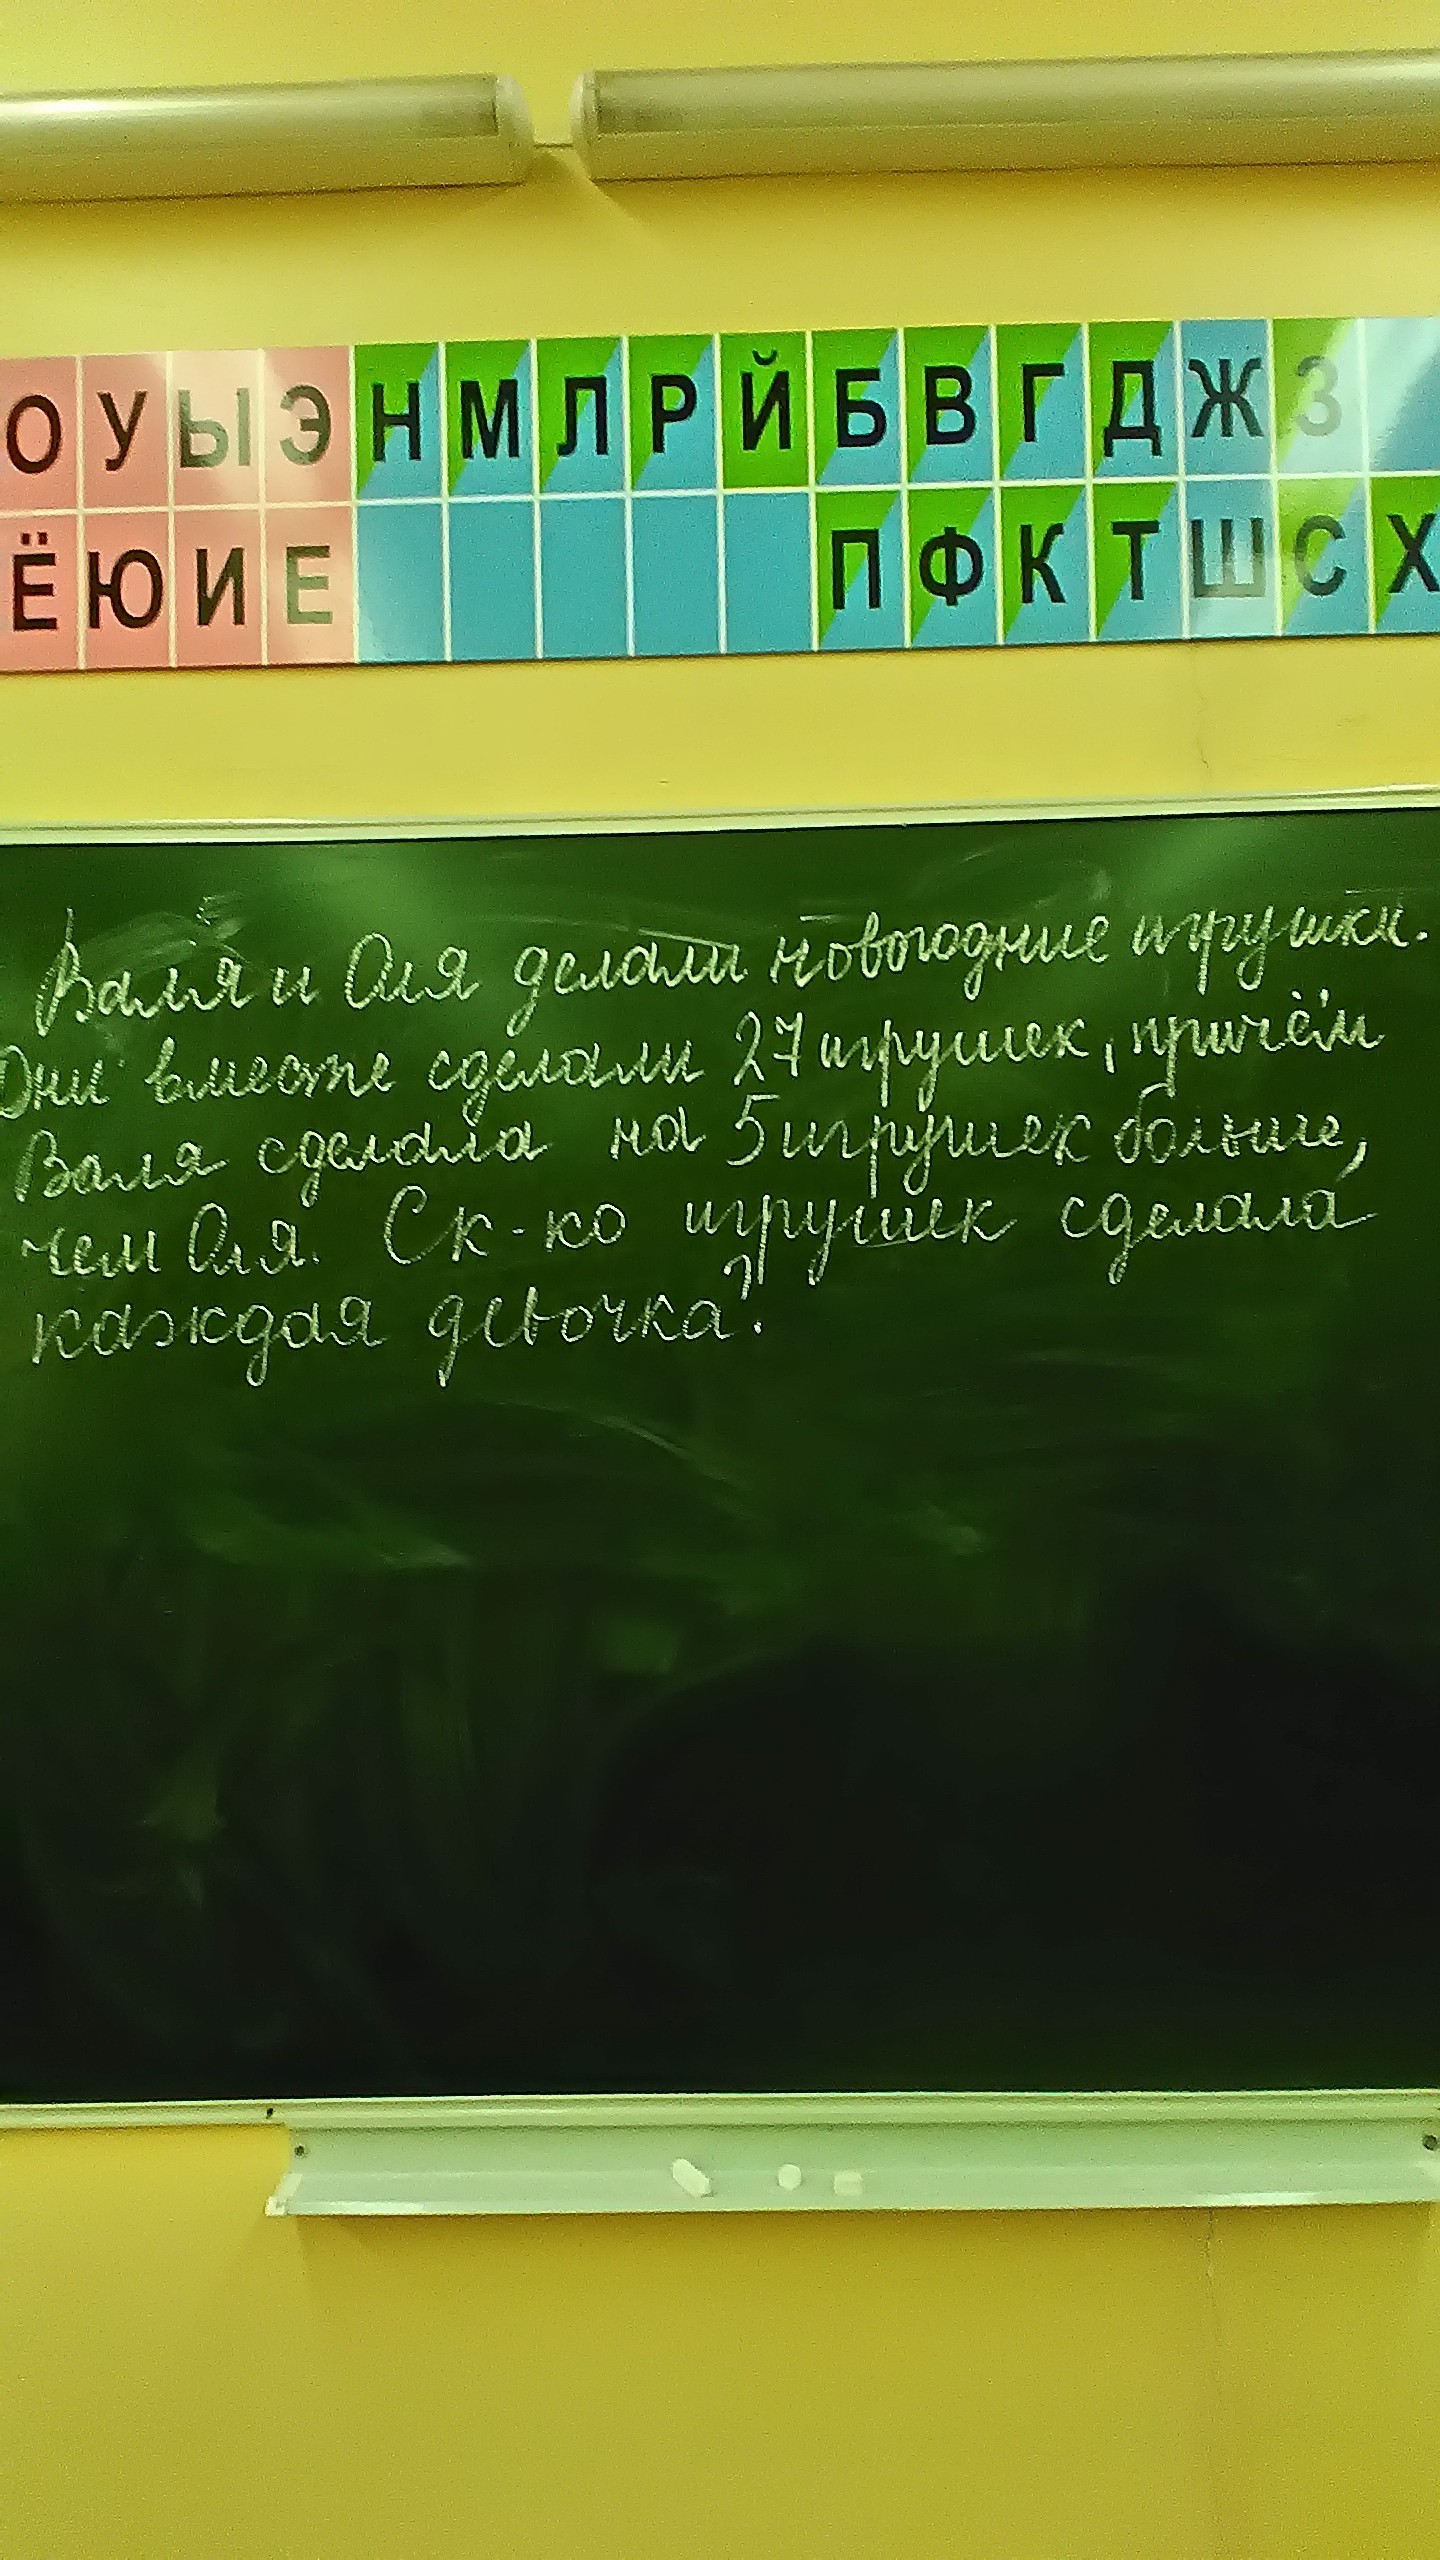 О У Ы Э Н М Л Р Й Б В Г Д Ж З
Ё Ю И Е П Ф К Т Ш С Х
Валя и Оля делали новогодние игрушки.
Они вместе сделали 27 игрушек, причём
Валя сделала на 5 игрушек больше,
чем Оля. Ск-ко игрушек сделала
каждая девочка?